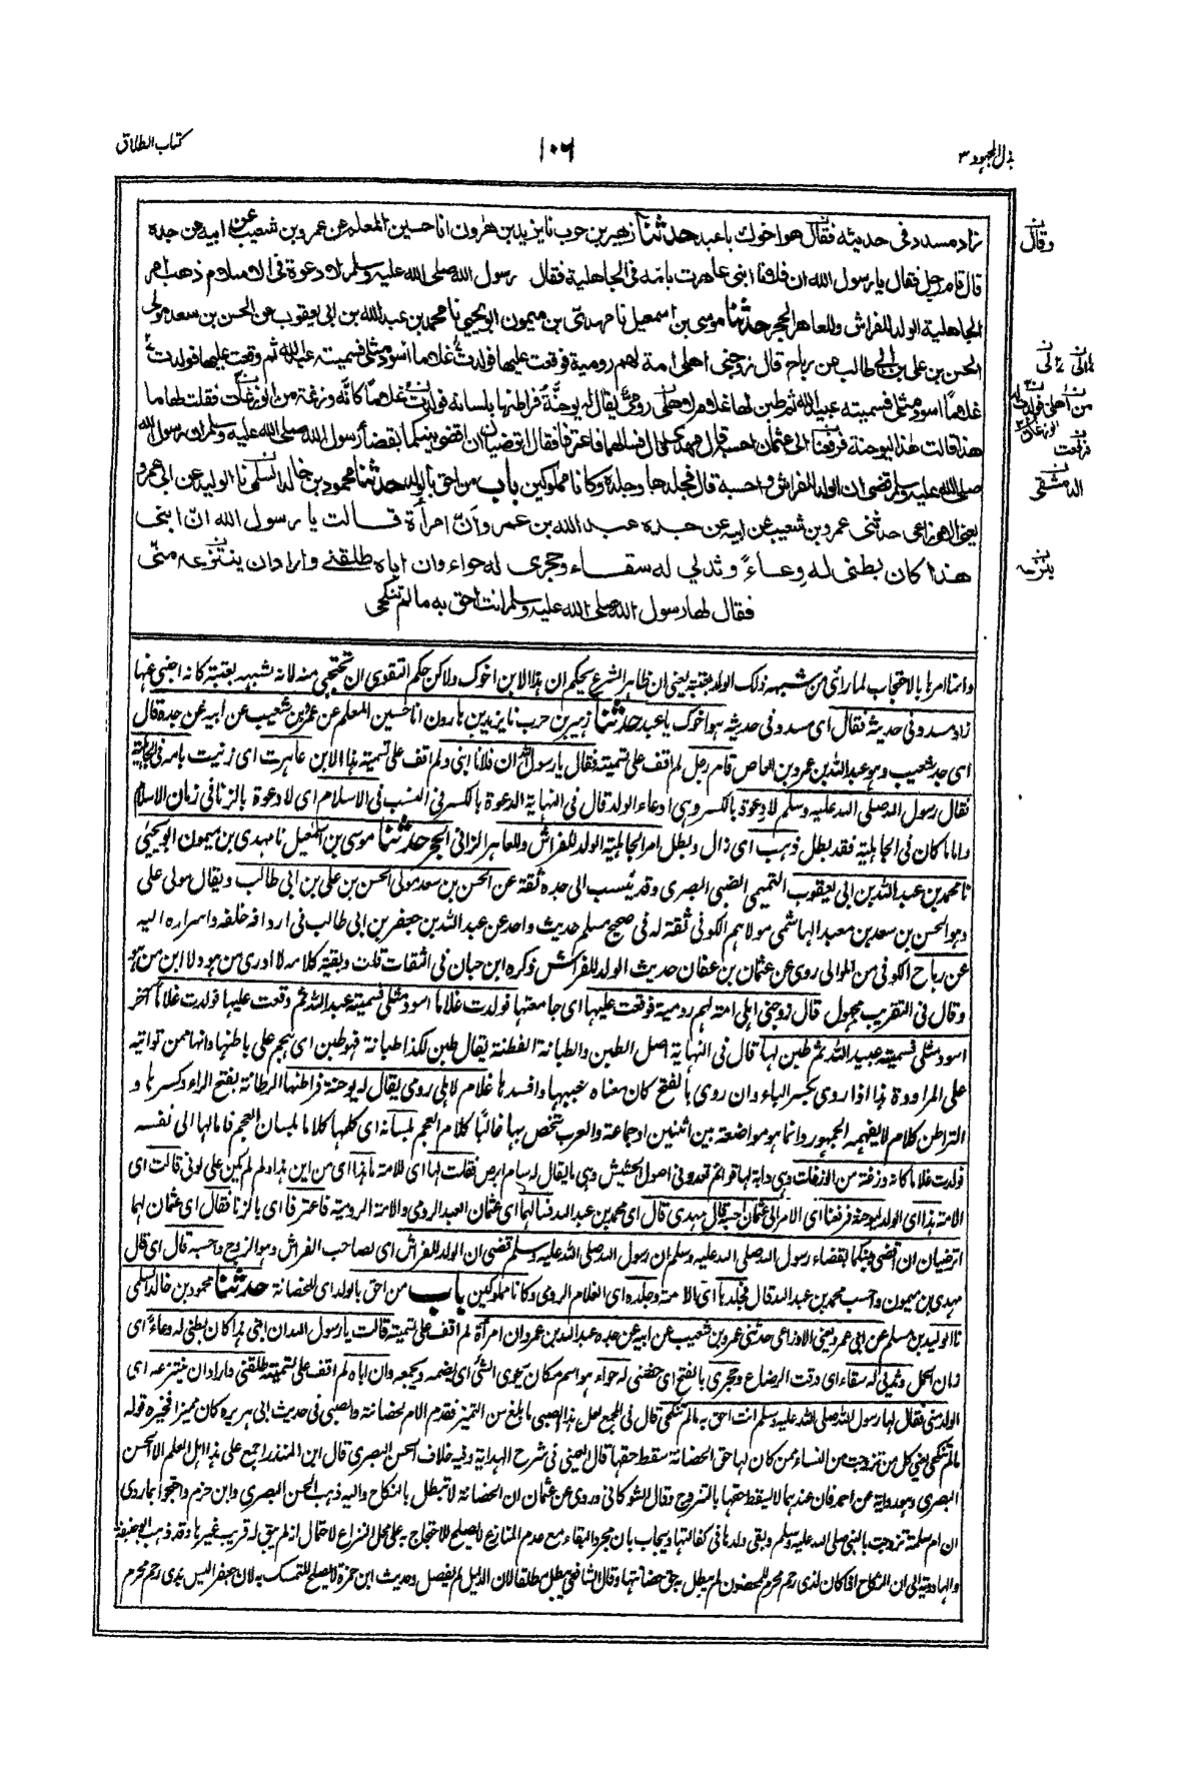 بذل المجهود ٣
١٠٦
كتاب الطلاق
زاد مسدد فى حديثه فقال هو اخوك يا عبد حدثنا زهير بن حرب نا يزيد بن هٰرون انا حسين المعلم عن عمرو بن شعيب عن ابيه عن جده
قال قام رجل فقال يا رسول الله ان فلانا ابنى عاهرت بامه فى الجاهلية فقال رسول الله صلى الله عليه وسلم لا دعوة فى الاسلام ذهب امر
الجاهلية الولد للفراش وللعاهر الحجر حدثنا موسى بن اسمعيل نا مهدى بن ميمون ابو يحيى نا محمد بن عبد الله بن ابى يعقوب عن الحسن بن سعد مولى
الحسن بن على بن ابى طالب عن رباح قال زوجنى اهلى امة لهم رومية فوقعت عليها فولدت غلاما اسود مثلى فسميته عبد الله ثم وقعت عليها فولدت
غلامًا اسود مثلى فسميته عبيد الله ثم طبن لها غلام لاهلى رومى يقال له يوحنّة فراطنها بلسانه فولدت غلامًا كانّه وزغة من الوزغات فقلت لها ما
هذا قالت هٰذا ليوحنة فرفعنا الى عثمان احسبه قال مهدى قال فسالهما فاعترفا فقال اترضيان ان اقضى بينكما بقضاء رسول الله صلى الله عليه وسلم ان رسول الله
صلى الله عليه وسلم قضى ان الولد للفراش واحسبه قال فجلدها وجلده وكانا مملوكين باب من احق بالولد حدثنا محمود بن خالد السلمى نا الوليد عن ابى عمرو
يعنى الاوزاعى حدثنى عمرو بن شعيب عن ابيه عن جده عبد الله بن عمرو انّ امرأة قالت يا رسول الله انّ ابنى
هذا كان بطنى له وعاءً وثديى له سقاء وحجرى له حواء وان اباه طلقنى واراد ان ينتزعه منّى
فقال لها رسول الله صلى الله عليه وسلم انت احق به ما لم تنكحى
وقال
من اهلى
فرفعت
الدمشقى
ينزعه
وانما امرها بالاحتجاب لما رائى من شبهه ذلك الولد بعتبة يعنى ان ظاهر الشرع يحكم ان هذا الابن اخوك ولاكن حكم التقوى ان تحتجبى منه لانه لشبهه بعتبة كانه اجنبى عنها
زاد مسدد فى حديثه فقال اى مسدد فى حديثه هو اخوك يا عبد حدثنا زهير بن حرب نا يزيد بن هارون انا حسين المعلم عن عمرو بن شعيب عن ابيه عن جده قال
اى جد شعيب وهو عبد الله بن عمرو بن العاص قام رجل لم اقف على تسميته فقال يا رسول الله ان فلانا ابنى ولم اقف على تسمية هذا الابن عاهرت اى زنيت بامه فى الجاهلية
فقال رسول الله صلى الله عليه وسلم لا دعوة بالكسر وهى ادعاء الولد قال فى النهاية الدعوة بالكسر فى النسب فى الاسلام اى لا دعوة بالزنا فى زمان الاسلام
واما ما كان فى الجاهلية فقد بطل ذهب اى زال وبطل امر الجاهلية الولد للفراش وللعاهر الزانى الحجر حدثنا موسى بن اسمٰعيل نا مهدى بن ميمون ابو يحيىٰ
نا محمد بن عبد الله بن ابى يعقوب التميمى الضبى البصرى وقد ينسب الى جده ثقة عن الحسن بن سعد مولى الحسن بن على بن ابى طالب ويقال مولى على
وهو الحسن بن سعد بن معبد الهاشمى مولاهم الكوفى ثقة له فى صحيح مسلم حديث واحد عن عبد الله بن جعفر بن ابى طالب فى اردافه خلفه واسراره اليه
عن رباح الكوفى من الموالى روى عن عثمان بن عفان حديث الولد للفراش ذكره ابن حبان فى الثقات قلت وبقية كلامه لا ادرى من هو ولا ابن من هو
وقال فى التقريب مجهول قال زوجنى اهلى امة لهم رومية فوقعت عليها اى جامعتها فولدت غلاما اسود مثلى فسميته عبد الله ثم وقعت عليها فولدت غلاما آخر
اسود مثلى فسميته عبيد الله ثم طبن لها قال فى النهاية اصل الطبن والطبانة الفطنة يقال طبن لكذا طبانة فهو طبن اى هجم على باطنها وانها ممن تواتيه
على المراودة هذا اذا روى بكسر الباء وان روى بالفتح كان معناه خببها وافسدها غلام لاهلى رومى يقال له يوحنة فراطنها الرطانة بفتح الراء وكسرها و
التراطن كلام لا يفهمه الجمهور وانما هو مواضعة بين اثنين او جماعة والعرب تخص بها غالبًا كلام العجم بلسانه اى كلمها كلاما بلسان العجم فامالها الى نفسه
فولدت غلاما كانه وزغة من الوزغات وهى دابة لها قوائم تعدو فى اصول الحشيش وهى ما يقال له سام ابرص فقلت لها اى للامة ما هذا اى من اين هذا ولم لم يكن على لونى قالت اى
الامة هذا اى الولد ليوحنة فرفعنا اى الامر الى عثمان احسبه قال مهدى قال اى محمد بن عبد الله فسالهما اى عثمان العبد الرومى والامة الرومية فاعترفا اى بالزنا فقال اى عثمان لهما
اترضيان ان اقضى بينكما بقضاء رسول الله صلى الله عليه وسلم ان رسول الله صلى الله عليه وسلم قضى ان الولد للفراش اى لصاحب الفراش وهو الزوج واحسبه قال اى قال
مهدى بن ميمون واحسب محمد بن عبد الله قال فجلدها اى الامة وجلده اى الغلام الرومى وكانا مملوكين باب من احق بالولد اى للحضانة حدثنا محمود بن خالد السلمى
نا الوليد بن مسلم عن ابى عمرو يعنى الاوزاعى حدثنى عمرو بن شعيب عن ابيه عن جده عبد الله بن عمرو ان امرأة لم اقف على تسميتها قالت يا رسول الله ان ابنى هذا كان بطنى له وعاءً اى
زمان الحمل وثديى له سقاء اى وقت الرضاع وحجرى بالفتح اى حضنى له حواء هو اسم مكان يحوى الشئ اى يضمه ويجمعه وان اباه لم اقف على تسميته طلقنى واراد ان ينتزعه اى
الولد منى فقال لها رسول الله صلى الله عليه وسلم انت احق به ما لم تنكحى قال فى المجمع لعل هذا الصبى ما بلغ سن التميز فقدم الام بحضانته والصبى فى حديث ابى هريرة كان مميزا فخيره قوله
ما لم تنكحى يعنى كل من تزوجت من النساء ممن كان لها حق الحضانة سقط حقها قال العينى فى شرح الهداية وفيه خلاف الحسن البصرى قال ابن المنذر اجمع على هذا اهل العلم الا الحسن
البصرى وهو رواية عن احمد فان عندهما لا يسقط حقها بالتزوج وقال الشوكانى وروى عن عثمان ان الحضانة لا تبطل بالنكاح واليه ذهب الحسن البصرى وابن حزم واحتجوا بما روى
ان ام سلمة تزوجت بالنبى صلى الله عليه وسلم وبقى ولدها فى كفالتها ويجاب بان مجرد البقاء مع عدم المنازع لا يصلح للاحتجاج به على محل النزاع لاحتمال انه لم يبق له قريب غيرها وقد ذهب ابو حنيفة
والهادوية الى ان النكاح اذا كان لذى رحم محرم للمحضون لم يبطل به حق حضانتها وقال الشافعى يبطل مطلقا لان الدليل لم يفصل وحديث ابن حمزة لا يصلح للتمسك به لان جعفرا ليس بذى رحم محرم